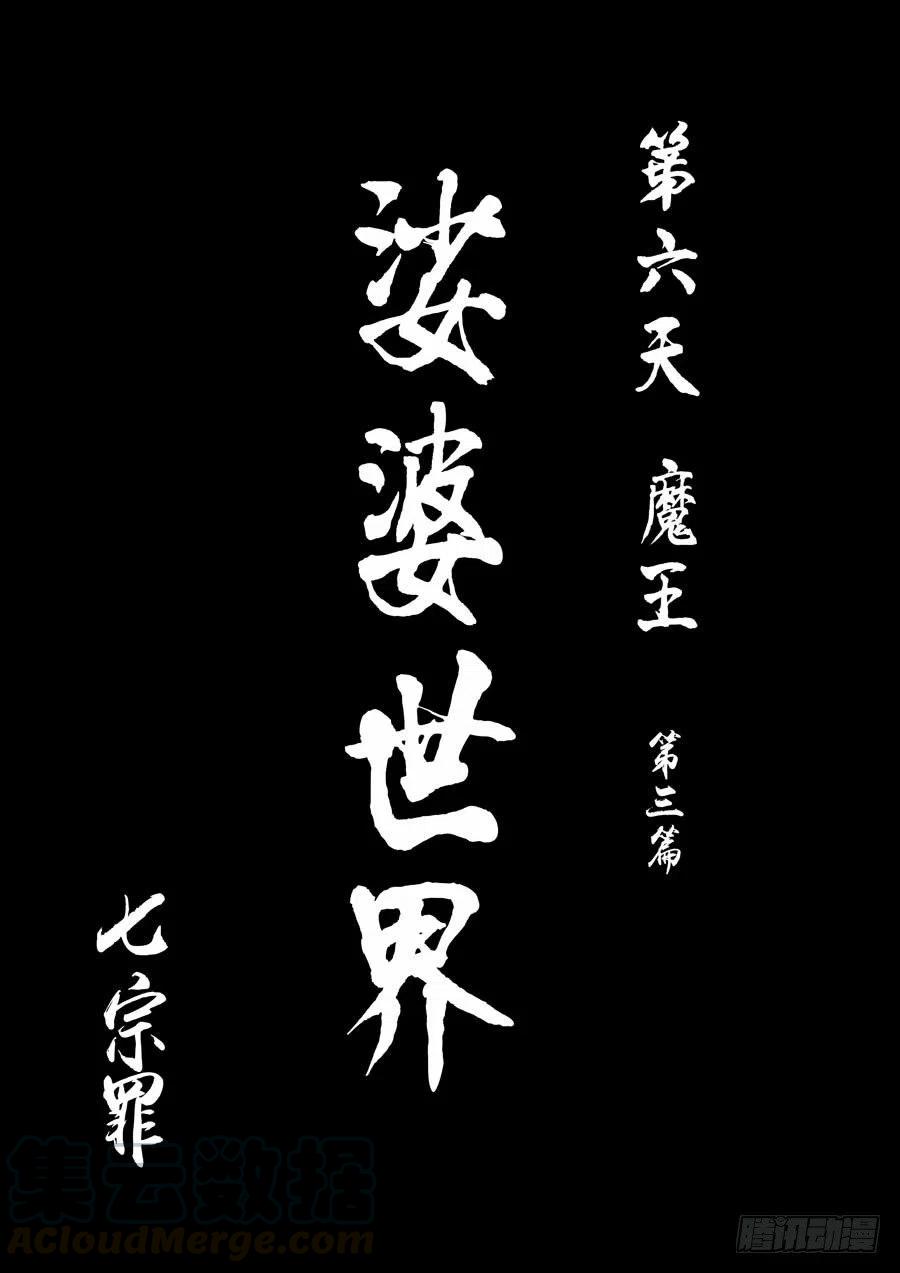 第六天 魔王 第三篇
娑婆世界
七宗罪
集云数据
ACloudMerge.com
腾讯动漫